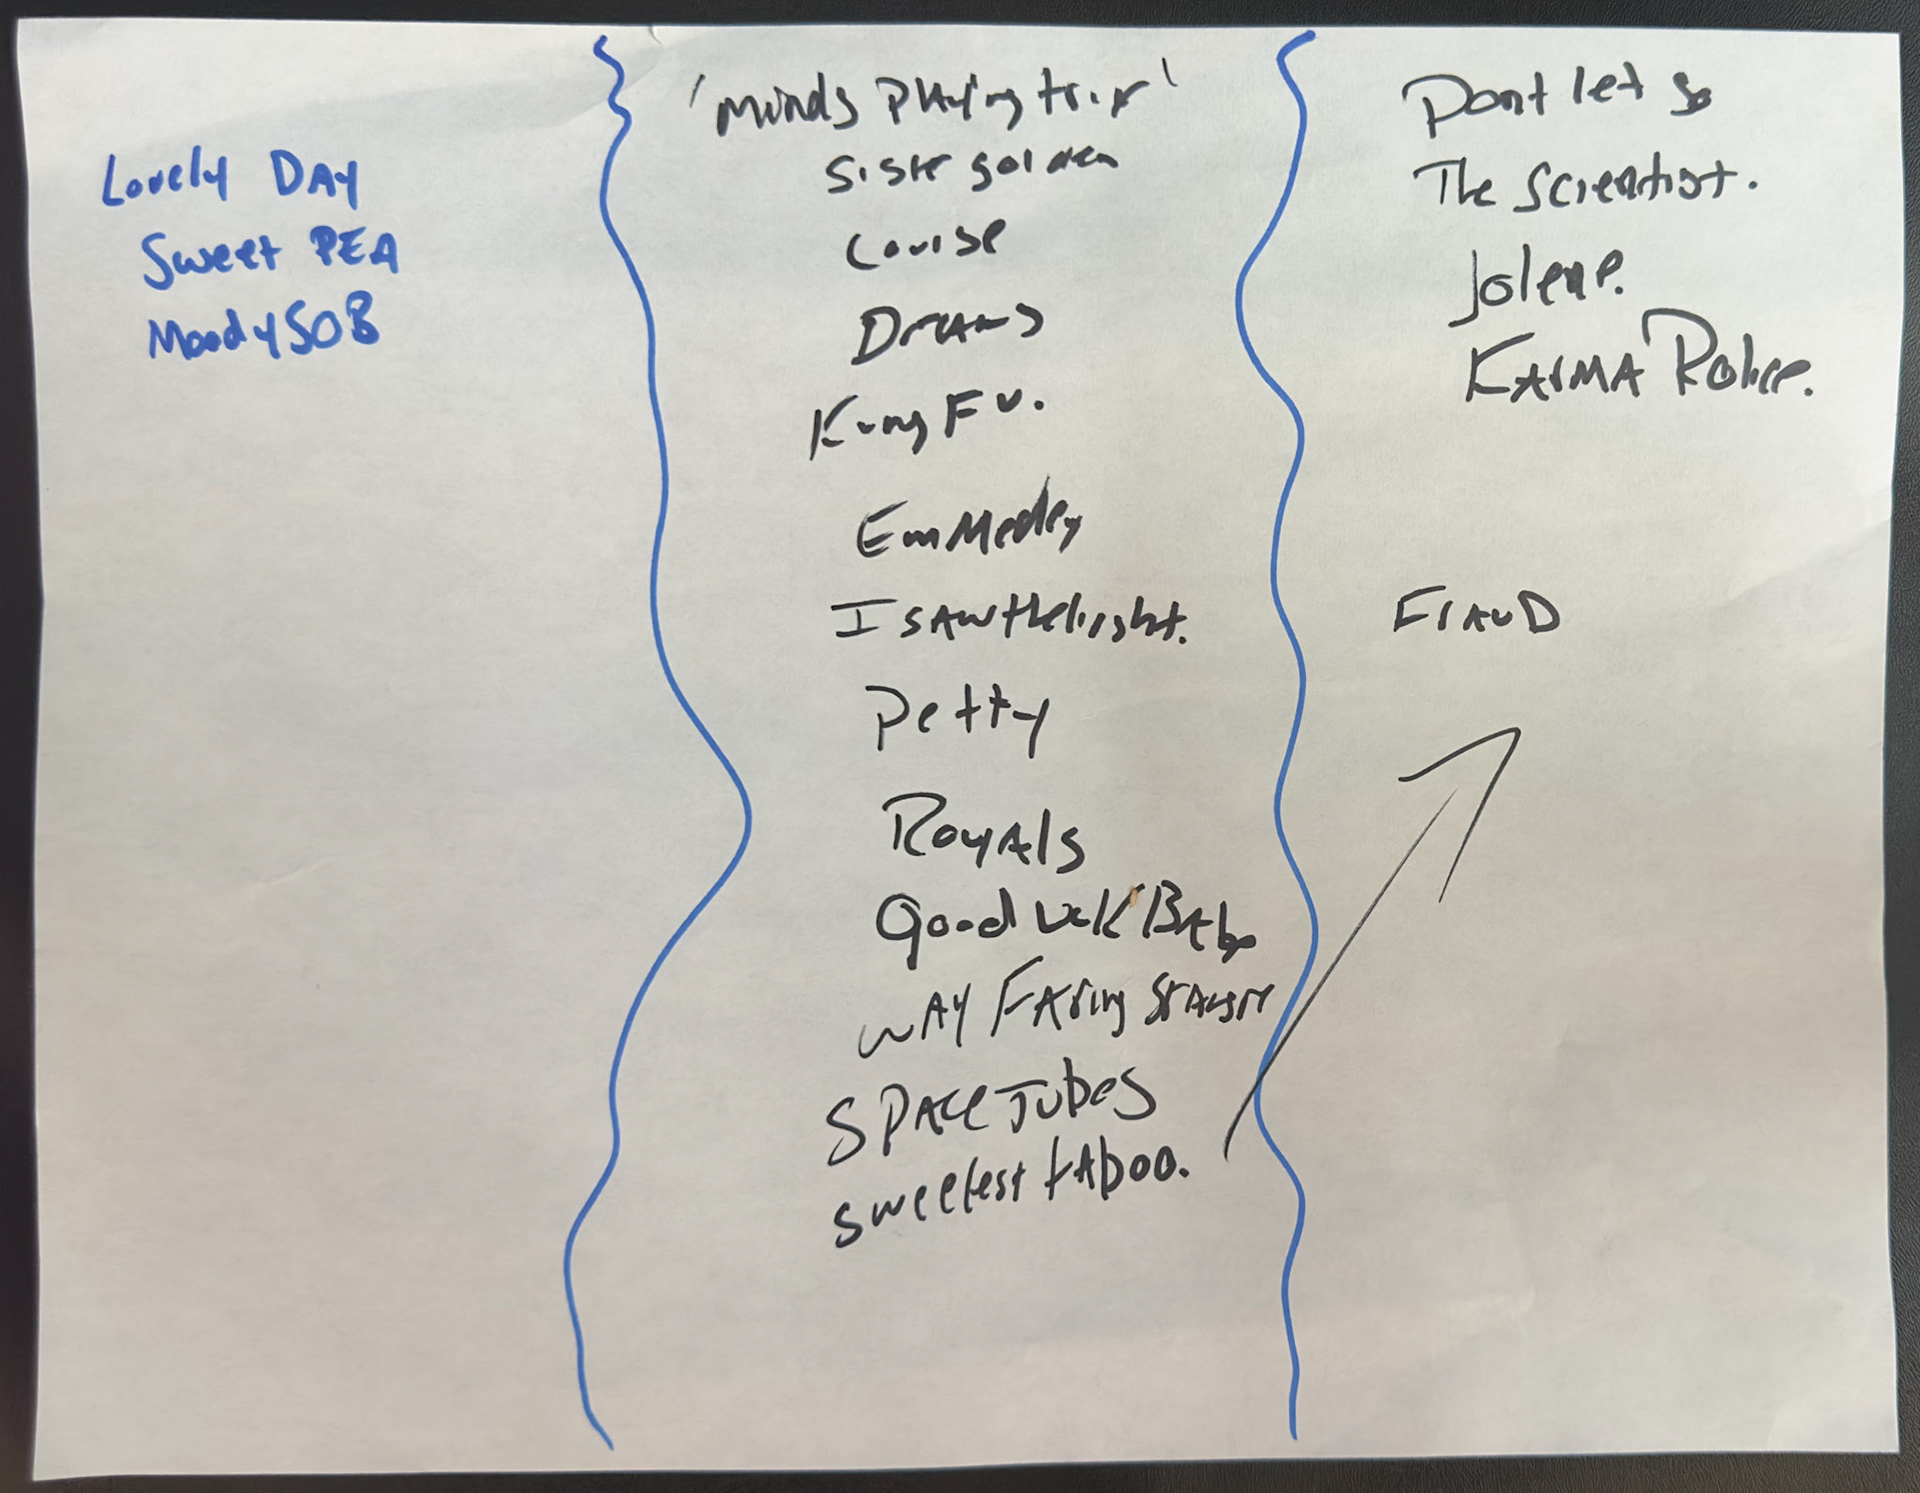 Lovely DAY
Sweet PEA
MoodySOB
'Minds Playing trix'
Sister golden
Louise
Dreams
Kung FU.
Em Medley
I sawthelight.
Petty
Royals
Good luck Babe
WAY FAring Strangr
SPACE JUbes
sweetest tAboo.
Dont let go
The Scientist.
Jolene.
KArMA Police.
FrAuD